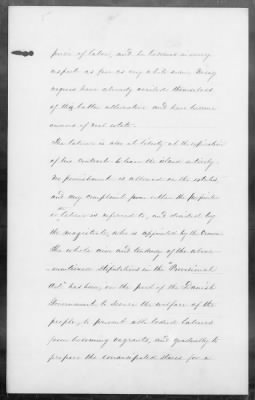 price of labor, and he becomes in every
respect as free as any white man. Many
negroes have already availed themselves
of the latter alternative and have become
owners of real estate.
The laborer is also at liberty at the expiration
of his contract to leave the island entirely.
No punishment is allowed on the estates,
and any complaint from either the proprietor
or laborer is referred to, and decided by
the magistrate, who is appointed by the Crown.
The whole aim and tendency of the above
mentioned stipulations in the "Provisional
Act" has been, on the part of the Danish
Government to secure the welfare of the
people, to prevent able bodied laborers
from becoming vagrants, and gradually to
prepare the emancipated slaves for a